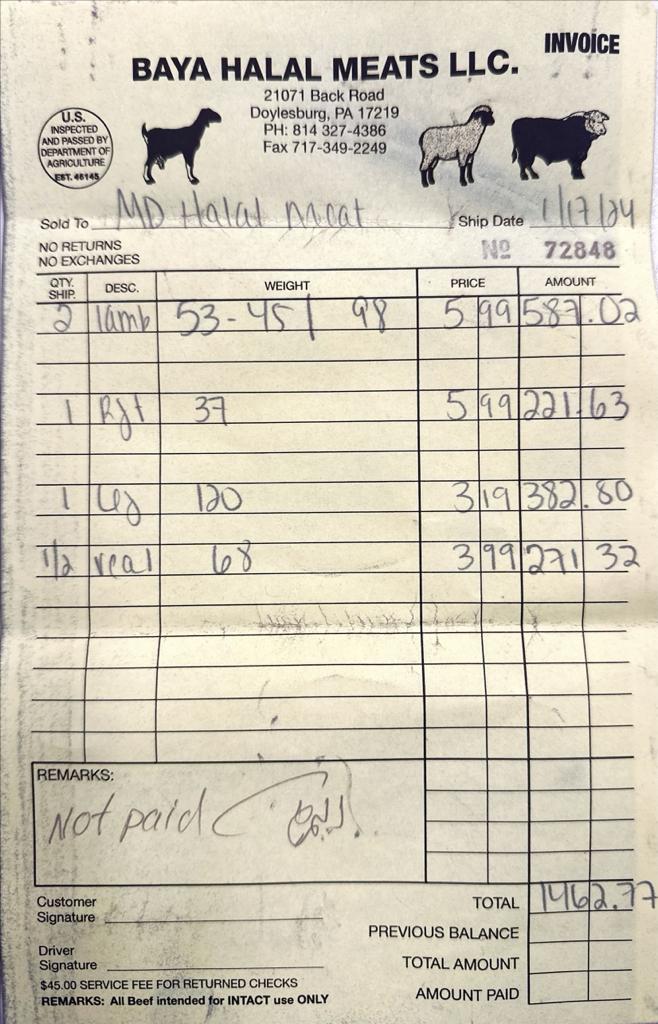 INVOICE
BAYA HALAL MEATS LLC.
21071 Back Road
Doylesburg, PA 17219
PH: 814 327-4386
Fax 717-349-2249
U.S.
INSPECTED
AND PASSED BY
DEPARTMENT OF
AGRICULTURE
EST. 46145
Sold To MD Halal Meat Ship Date 1/17/24
NO RETURNS
NO EXCHANGES
Nº 72848
QTY. SHIP. DESC. WEIGHT PRICE AMOUNT
2 lamb 53-45/ 98 5 99 587.02
1 Rgt 37 5 99 221.63
1 Leg 120 3 19 382.80
1/2 veal 68 3 99 271 32
REMARKS:
Not paid
Customer
Signature
Driver
Signature
$45.00 SERVICE FEE FOR RETURNED CHECKS
REMARKS: All Beef intended for INTACT use ONLY
TOTAL 1462.77
PREVIOUS BALANCE
TOTAL AMOUNT
AMOUNT PAID